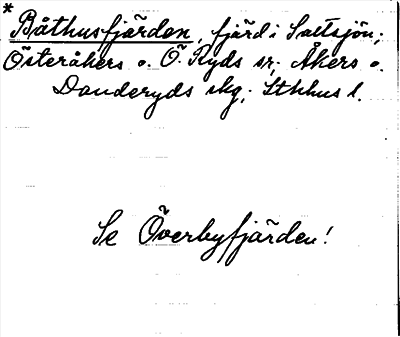 * Båthusfjärden, fjärd i Saltsjön;
Österåkers o. Ö. Ryds sr; Åkers o.
Danderyds skg; Sthlms l.
Se Överbyfjärden!